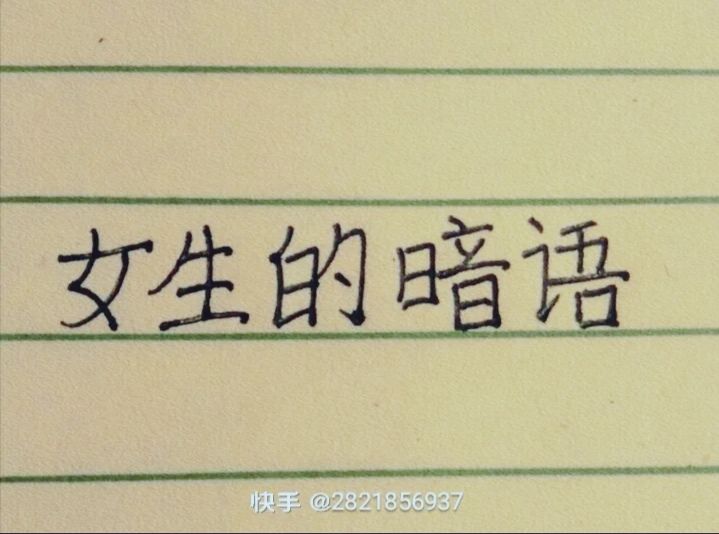 女生的暗语
快手 @2821856937